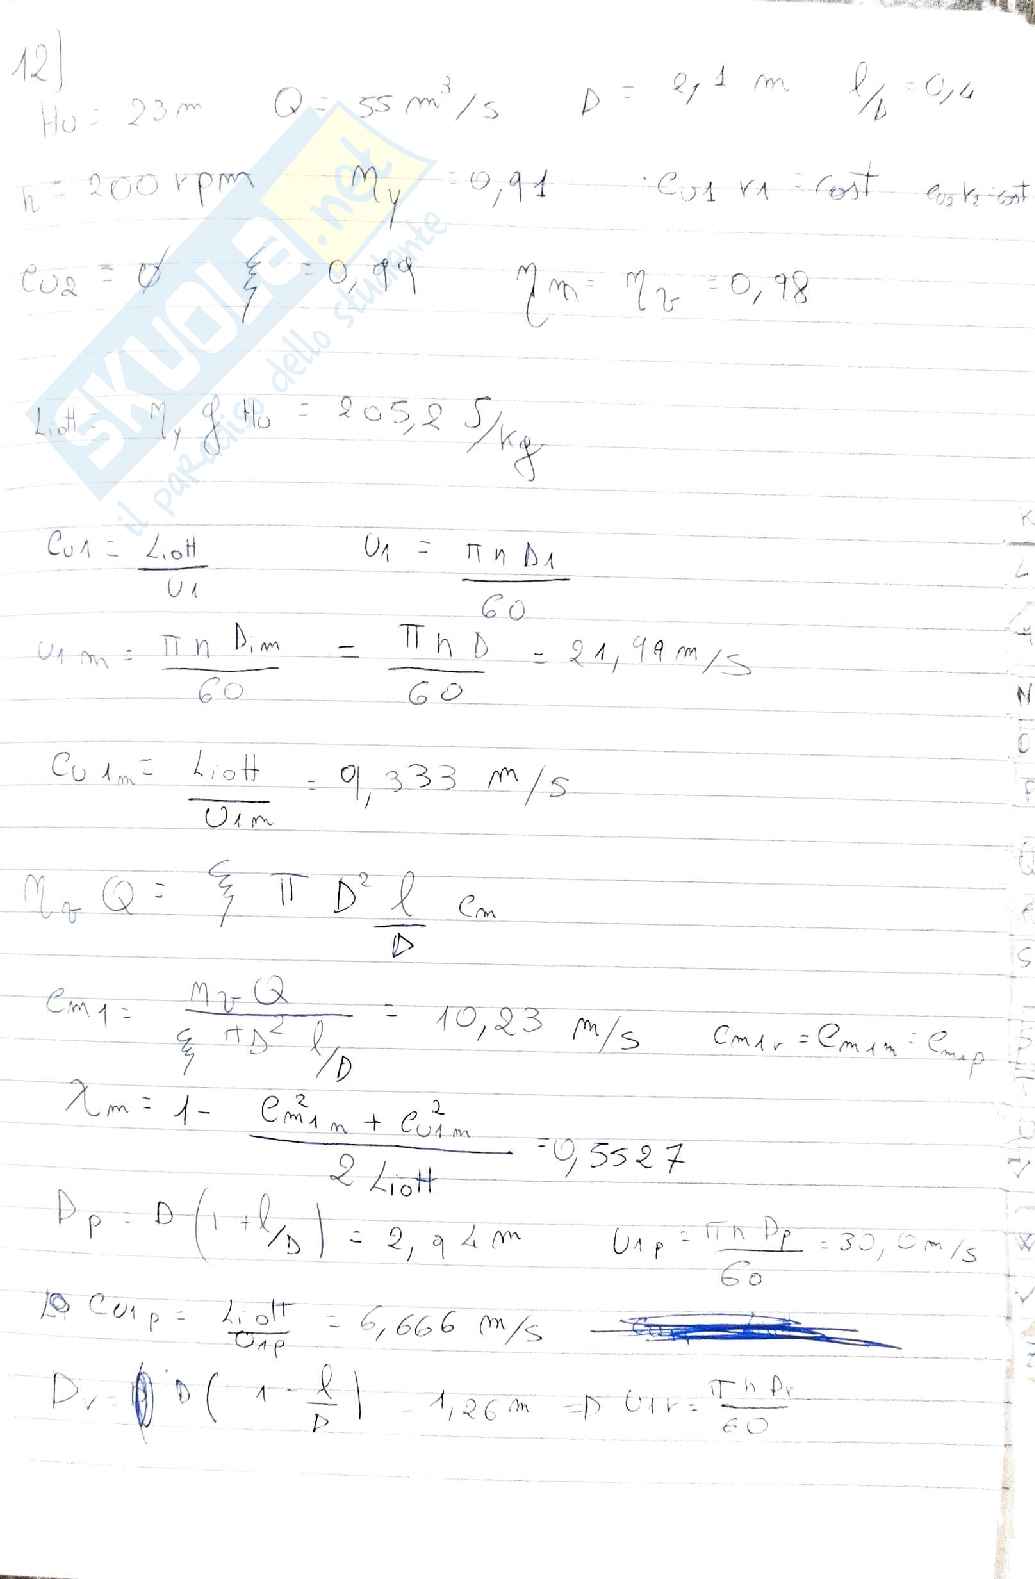 12)
Hu = 23 m Q = 55 m³/s D = 2,1 m l/D = 0,4
n = 200 rpm ηy = 0,91 cu1 r1 = cost cu2 r2 = cost
cu2 = 0 ξ = 0,99 ηm = ηv = 0,98
Li∞tt = ηy g Hu = 205,2 J/kg
cu1 = Li∞tt / u1 u1 = π n D1 / 60
u1m = π n D1m / 60 = π n D / 60 = 21,99 m/s
cu1m = Li∞tt / u1m = 9,333 m/s
ηv Q = ξ π D² l/D cm
cm1 = ηv Q / ξ π D² l/D = 10,23 m/s cm1r = cm1m = cm1p
χm = 1 - cm1m² + cu1m² / 2 Li∞tt = 0,5527
Dp = D (1 + l/D) = 2,94 m u1p = π n Dp / 60 = 30,0 m/s
cu1p = Li∞tt / u1p = 6,666 m/s
Dr = D (1 - l/D) = 1,26 m => u1r = π n Dr / 60
SKUOLA.net
il paradiso dello studente